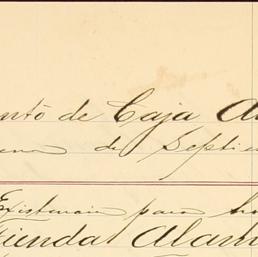 ento de Caja A
ena de Septie
Existencia para
ienda Alam